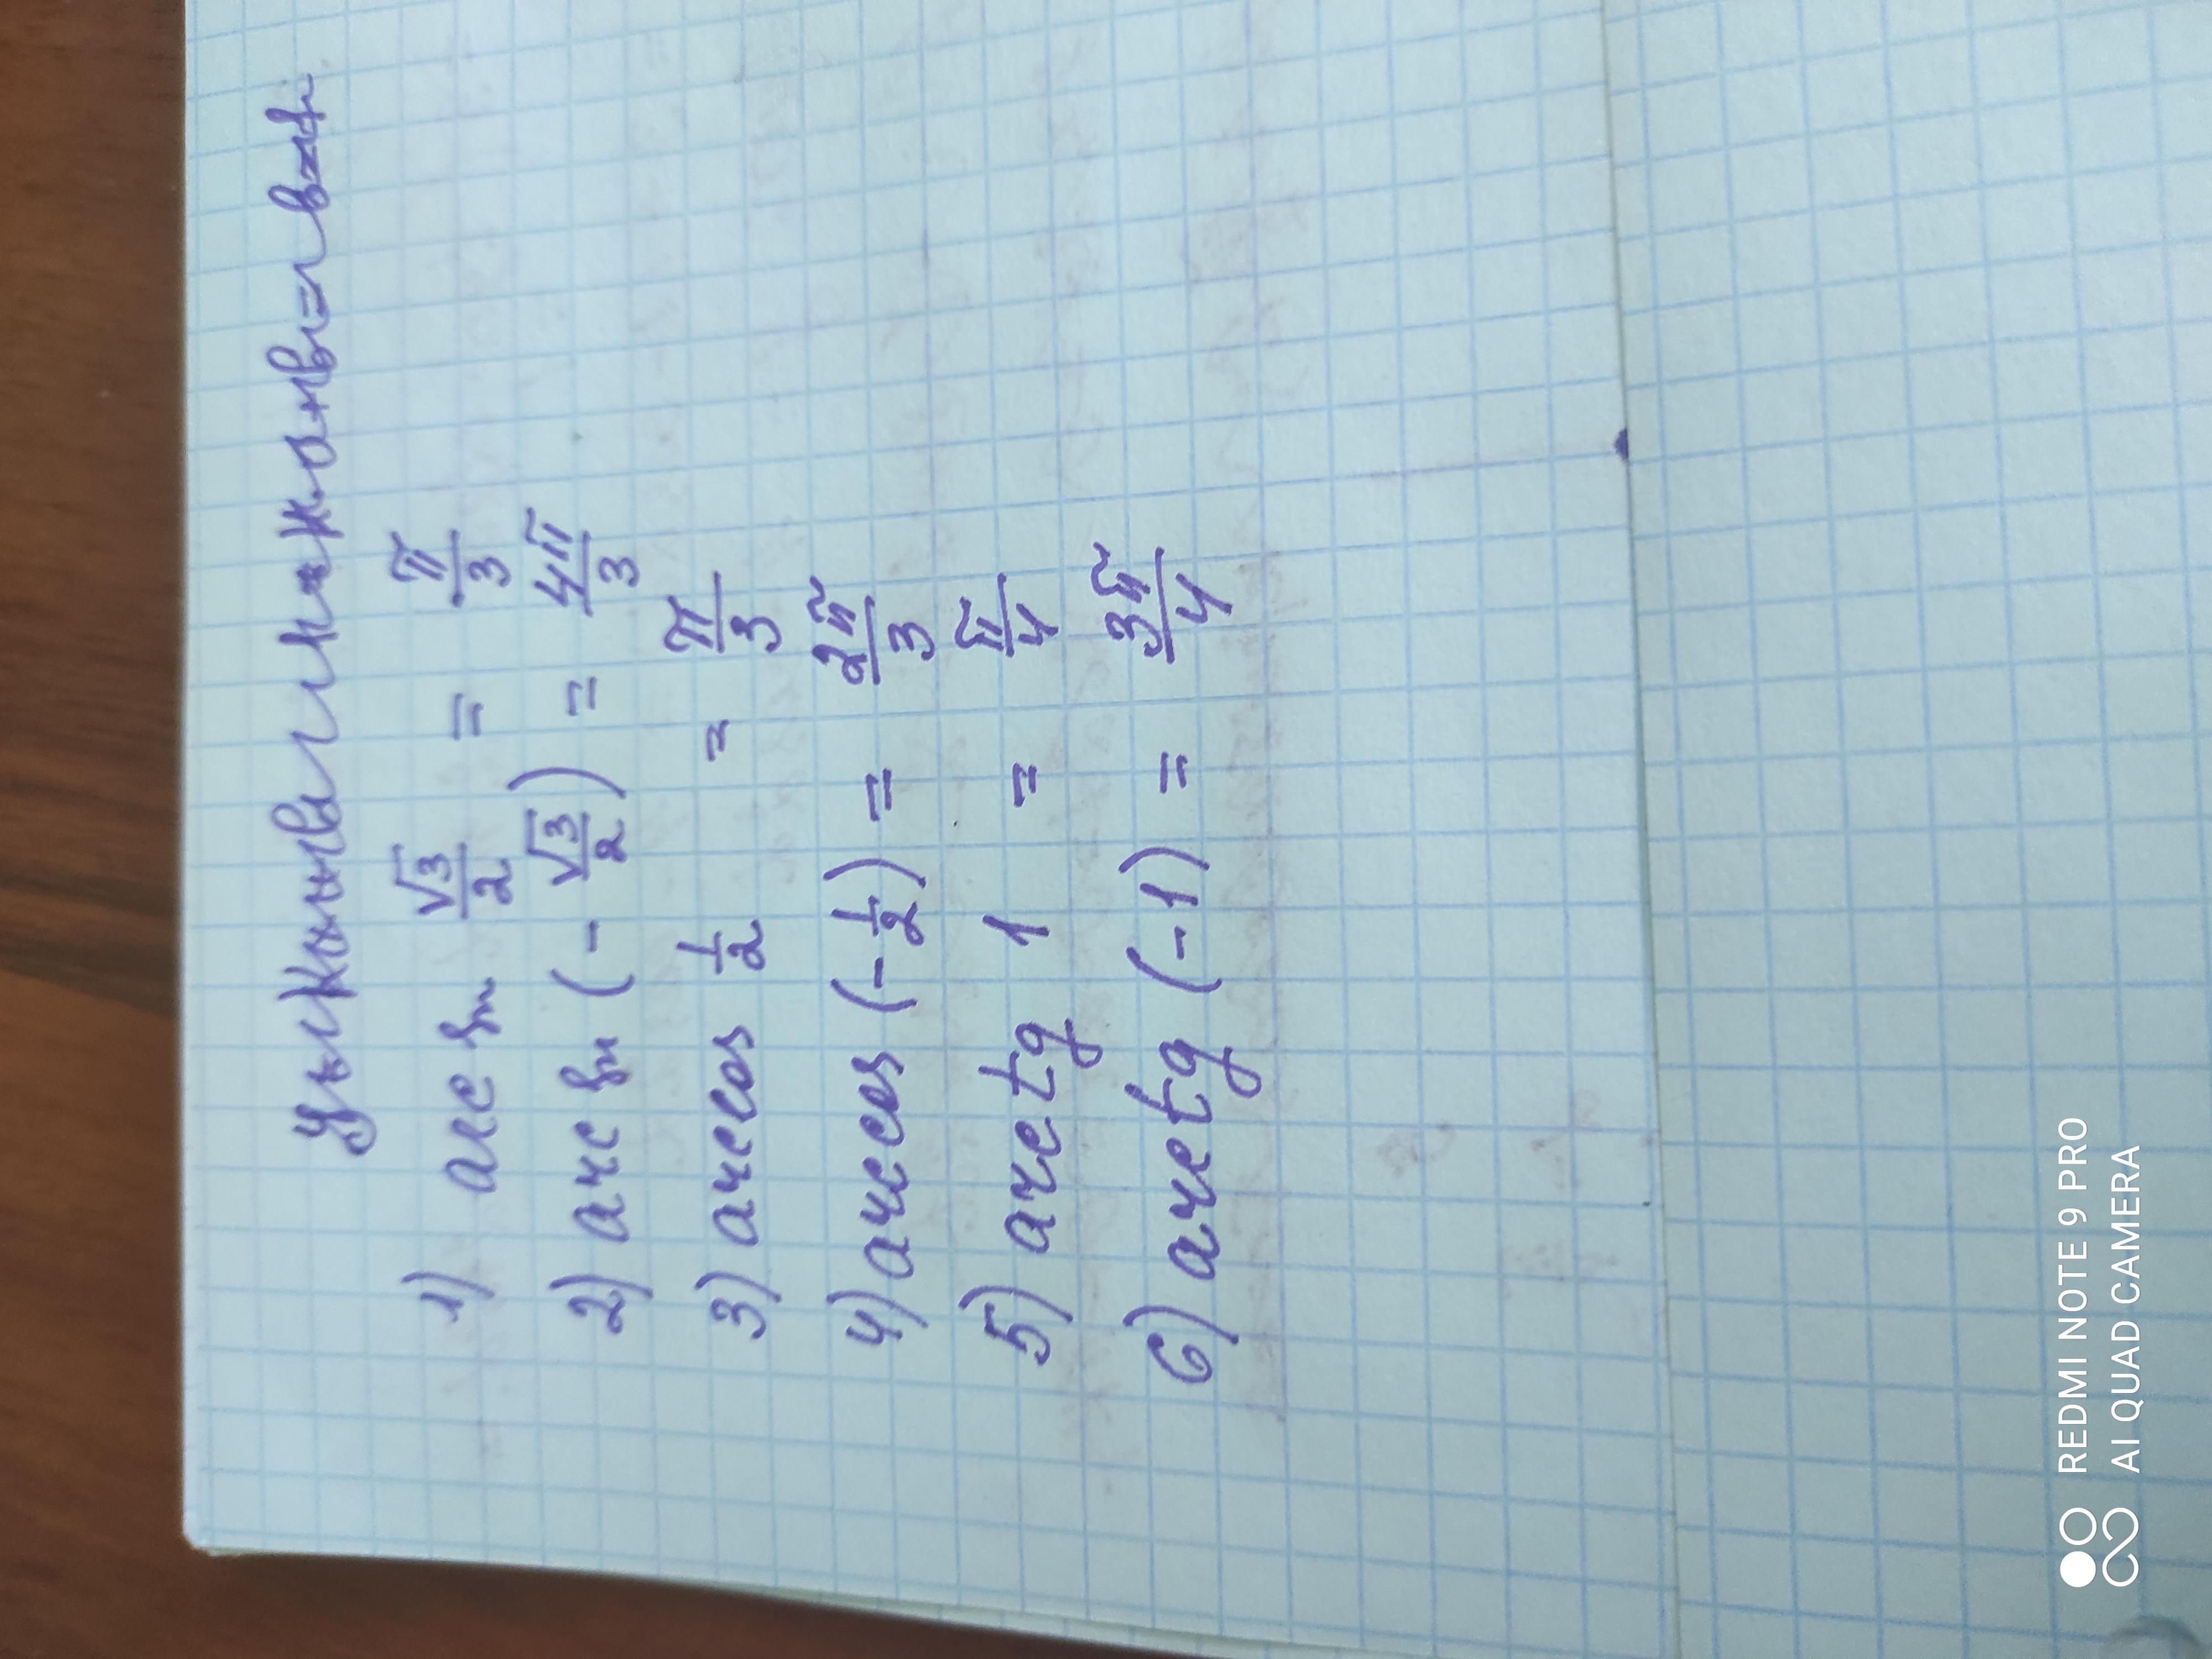 1) arc sin √3/2 = π/3
2) arc sin (- √3/2) = 4π/3
3) arccos 1/2 = π/3
4) arccos (-1/2) = 2π/3
5) arctg 1 = π/4
6) arctg (-1) = 3π/4
REDMI NOTE 9 PRO
AI QUAD CAMERA